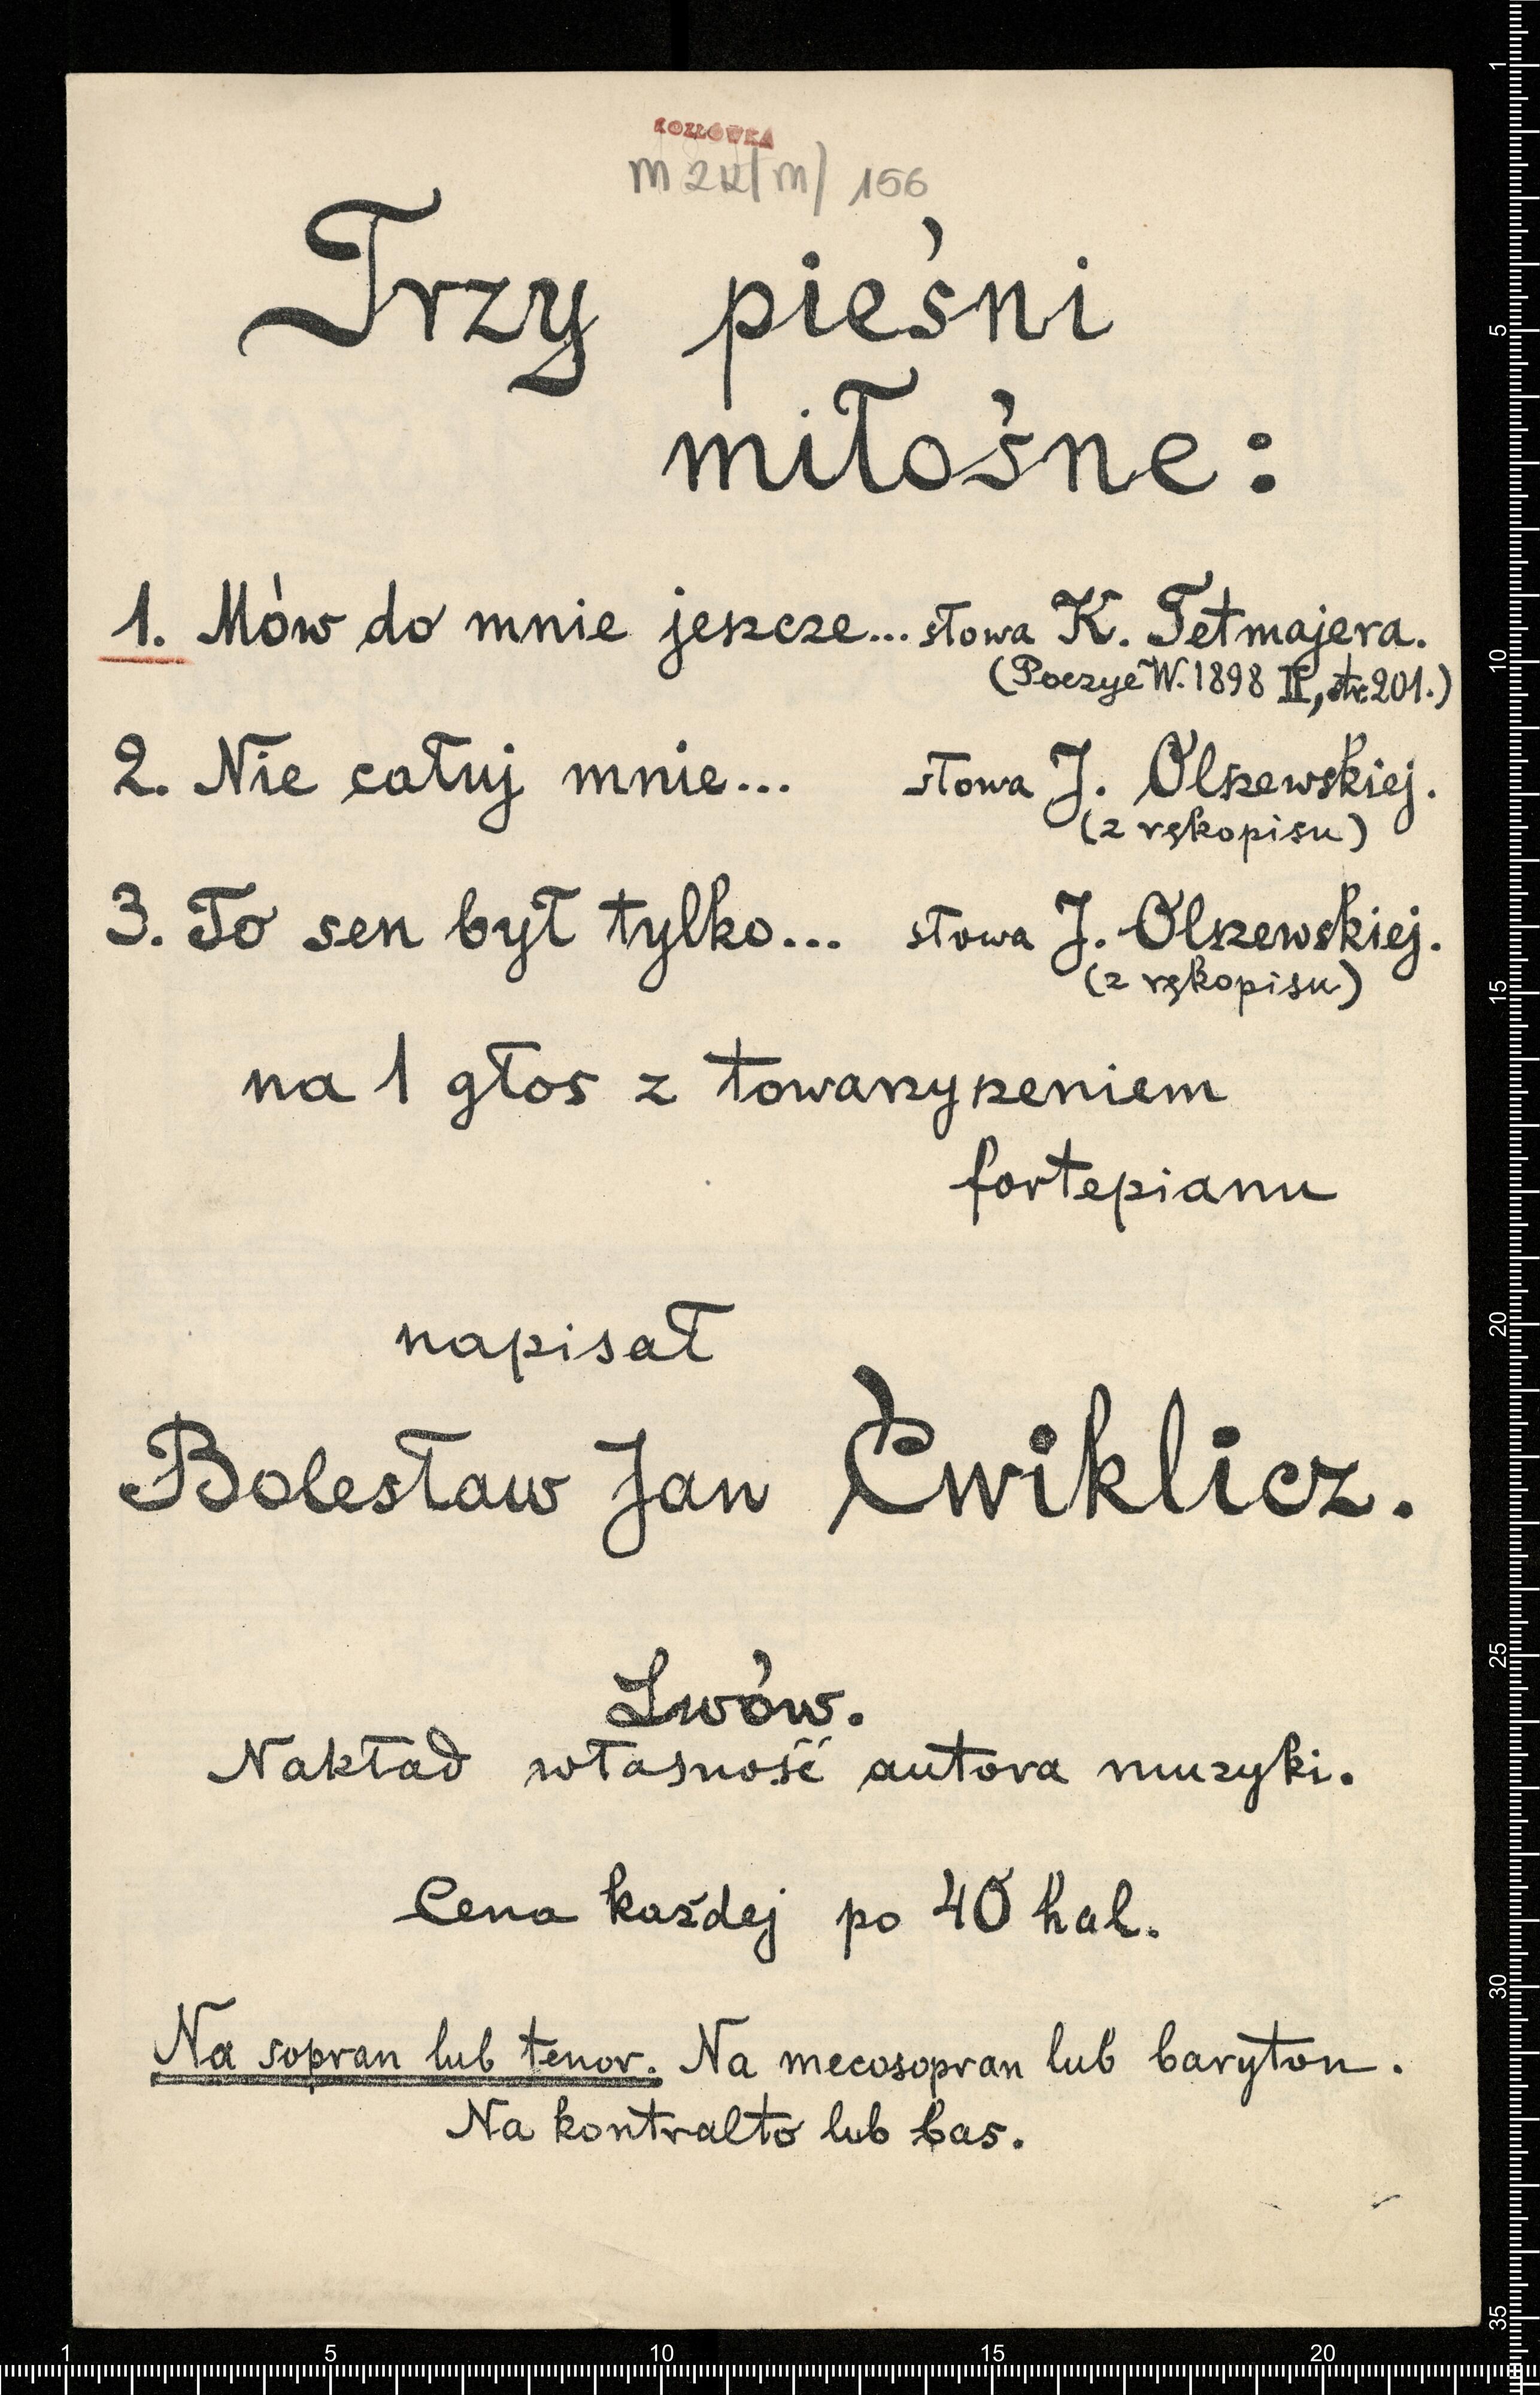 KOZŁÓWKA
156
Trzy pieśni
miłośne:
1. Mów do mnie jeszcze... słowa K. Tetmajera.
(Poezye W. 1898 II, str. 201.)
2. Nie całuj mnie... słowa J. Olszewskiej.
(z rękopisu)
3. To sen był tylko... słowa J. Olszewskiej.
(z rękopisu)
na 1 głos z towarzyszeniem
fortepianu
napisał
Bolesław Jan Ćwiklicz.
Lwów.
Nakład własność autora muzyki.
Cena każdej po 40 hal.
Na sopran lub tenor. Na mecosopran lub baryton.
Na kontralto lub bas.
1
5
10
15
20
25
30
35
1
5
10
15
20